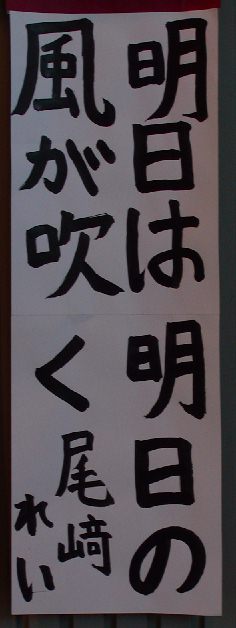 明日は明日の
風が吹く
尾﨑
れい